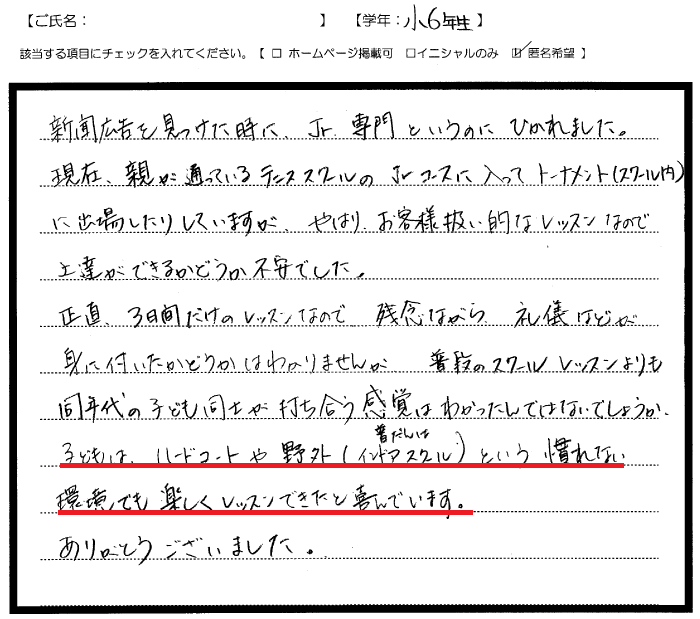 【ご氏名: 】 【学年: 小6年生】
該当する項目にチェックを入れてください。【 □ ホームページ掲載可 □イニシャルのみ ☑匿名希望 】
新聞広告を見つけた時に、Jr 専門というのにひかれました。
現在、親が通っているテニススクールのJrコースに入ってトーナメント(スクール内)
に出場したりしていますが、やはり、お客様扱い的なレッスンなので
上達ができるかどうか不安でした。
正直、3日間だけのレッスンなので、残念ながら、礼儀などが
身に付いたかどうかはわかりませんが 普段のスクールレッスンよりも
同年代の子ども同士が打ち合う感覚はわかったんではないでしょうか、
子どもは、ハードコートや野外(普だんはインドアスクール)という慣れない
環境でも楽しくレッスンできたと喜んでいます。
ありがとうございました。